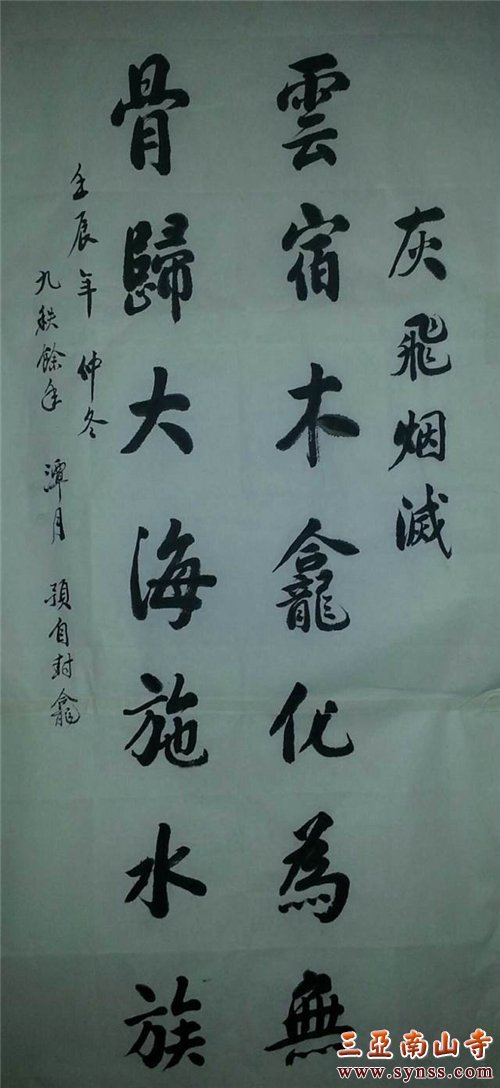 灰飛烟滅
雲宿木龕化為無
骨歸大海施水族
壬辰年 仲冬
九秩餘年 潭月 預自封龕
三亞南山寺
www.synss.com